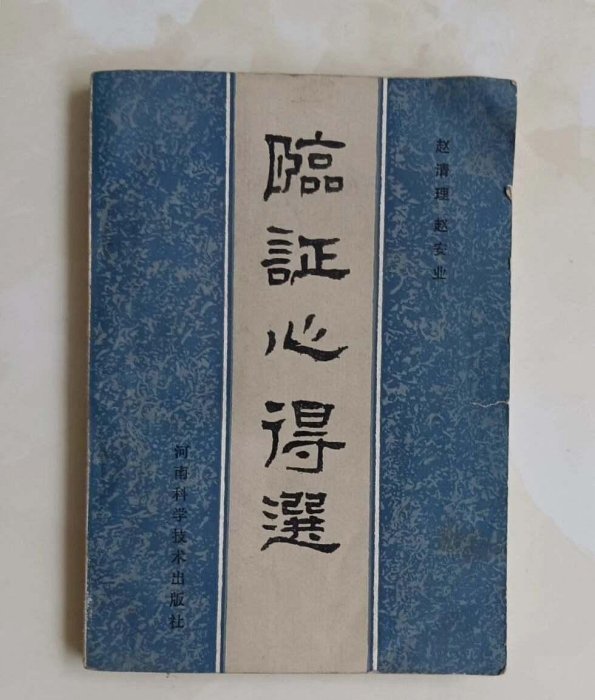 赵清理 赵安业
臨証心得選
河南科学技术出版社